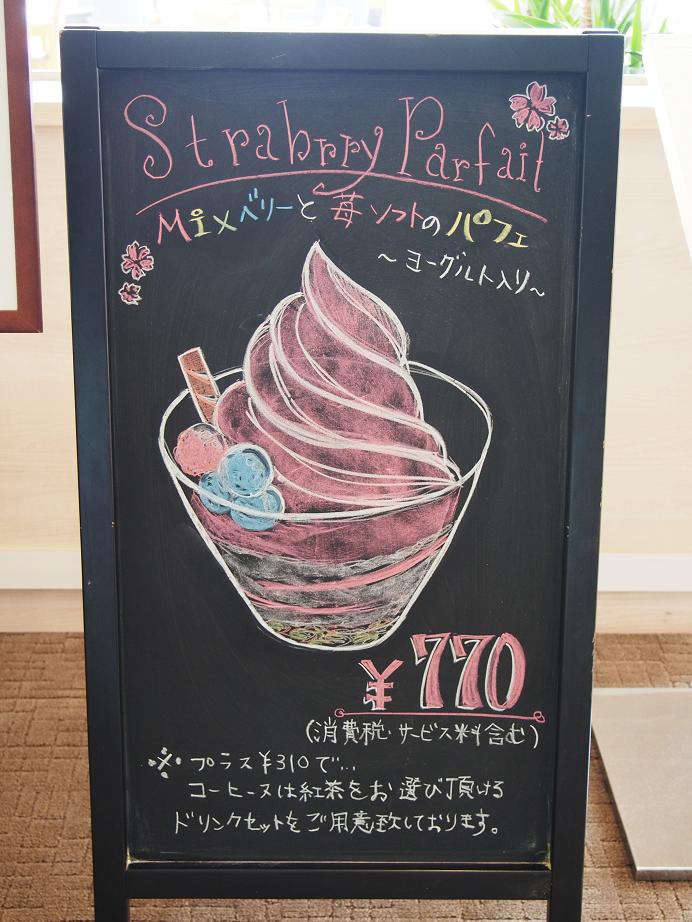 Strabrry Parfait
Mixベリーと苺ソフトのパフェ
～ヨーグルト入り～
¥770
(消費税・サービス料含む)
※プラス¥310で...
コーヒー又は紅茶をお選び頂ける
ドリンクセットをご用意致しております。